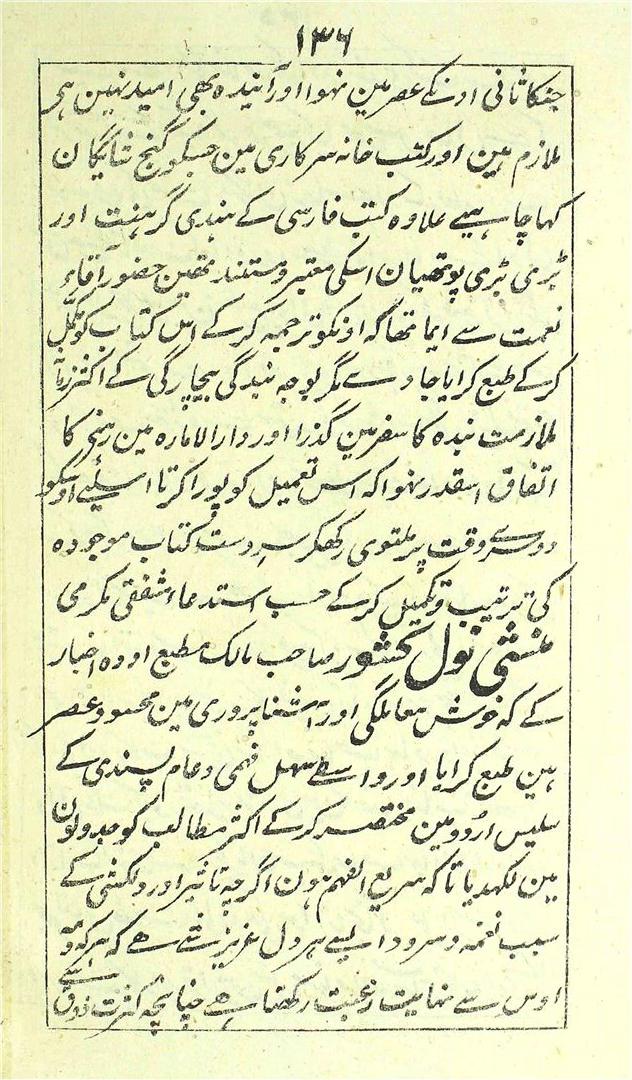 ۱۳۶
جنکا ثانی اونکے عصر مین نہوا اور آیندہ بھی امید نہین ہی
ملازم ہین اور کتب خانہ سرکاری مین جسکو گنج شایگان
کہا چاہیے علاوہ کتب فارسی کے ہندی گرہنت اور
بڑی بڑی پوتھیان اسکی معتبر و مستند تھین حضور آقاء
نعمت سے ایما تھا کہ اونکو ترجمہ کر کے اس کتاب کو مکمل
کر کے طبع کرایا جاوے مگر بوجہ بندگی بیچارگی کے اکثر زمانہ
ملازمت بندہ کا سفر مین گذرا اور دار الامارہ مین رہنی کا
اتفاق اسقدر نہوا کہ اس تعمیل کو پورا کرتا اسلیے اوسکو
دوسرے وقت پر ملتوی رکھکر سردست کتاب موجودہ
کی ترتیب و تکمیل کر کے حسب استدعا اشفقی مکرمی
منشی نول کشور صاحب مالک مطبع اودہ اخبار
کے کہ خوش معاملگی اور آشنا پروری مین محسود عصر
ہین طبع کرایا اور واسطے سہل فہمی و عام پسندی کے
سلیس اردو مین مختصر کر کے اکثر مطالب کو جدولون
مین لکھدیا تاکہ سریع الفہم ہون اگرچہ تاثیر اور دلکشی کے
سبب نغمہ و سرود ایسے ہر دل عزیز شے ہے کہ ہر کہ و مہ
اوس سے نہایت رغبت رکھتا ہے چنانچہ کثرت ذوق سے